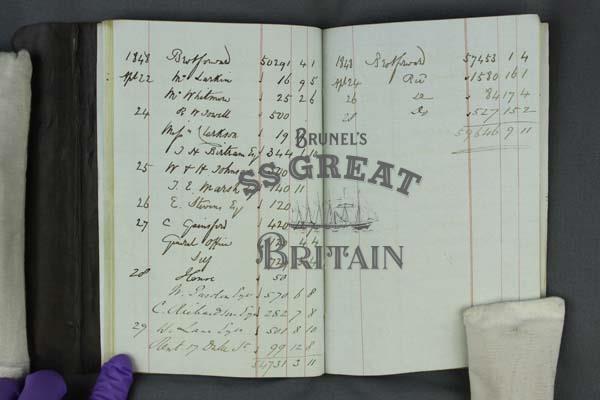 1848 Brot forward 50291 4 1
Sept 22 Mr Larkin 16 9 5
Mr Whitmore 25 2 6
24 R W Jowell 500
Clarkson 19
J H Bertram Esq 344
25 W & H Johnson
J. E. Marsh 140 11
26 E. Stevens Esq 120
27 C Gainsford 420
General Office
Self
28 House 50
W. Pardon Esqr 570 6 8
C. Richardson Esqr 282 7 8
29 W. Lane Esqr 501 8 10
Rent 17 Duke St 99 12 8
54731 3 11
1848 Brot forward 57453 1 4
Sept 24 1580 16 1
26 84 17 4
28 Do 527 15 2
59646 9 11
BRUNEL'S
SS GREAT
BRITAIN